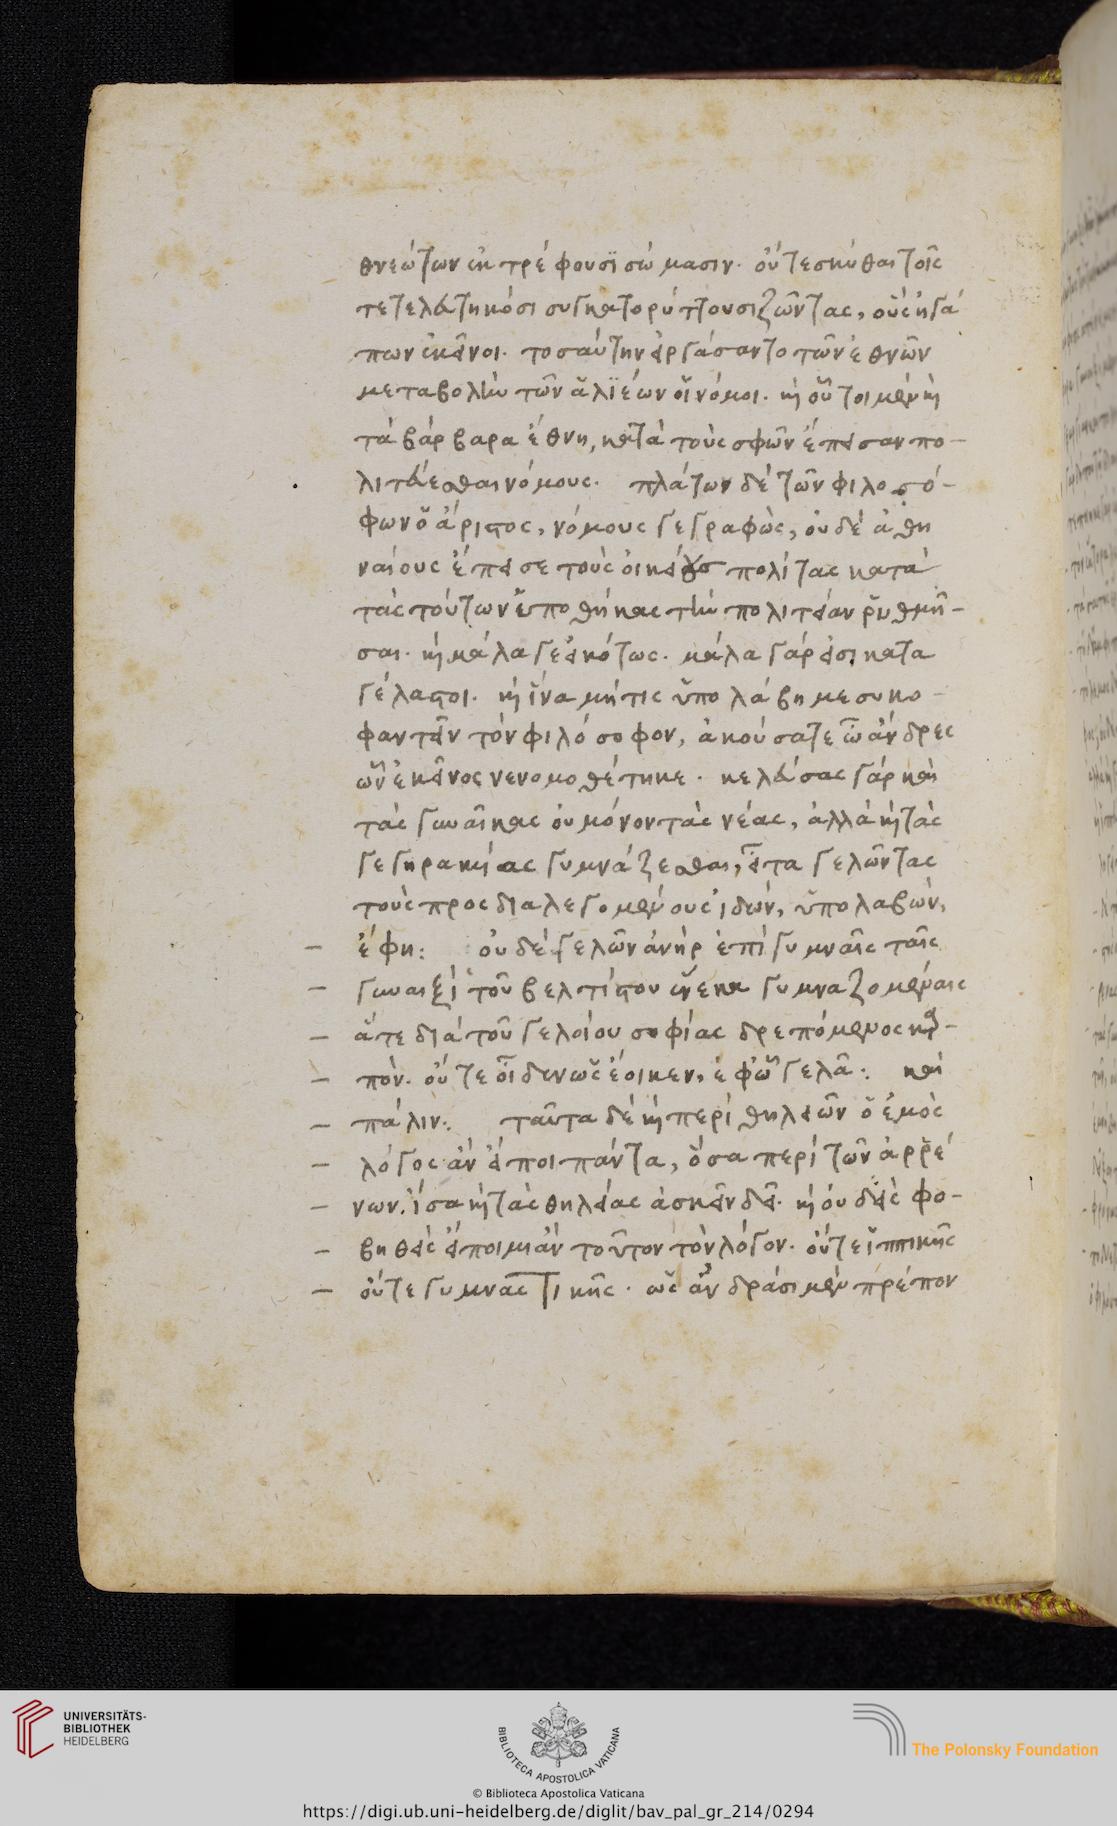 θνεώτων ἐκτρέφουσι σώμασιν. οὔτε σκύθαι τοῖς
τετελευτηκόσι συγκατορύττουσι ζῶντας, οὓς ἠγά
πων ἐκεῖνοι. τοσαύτην εἰργάσαντο τῶν ἐθνῶν
μεταβολὴν τῶν ἁλϊέων οἱ νόμοι. καὶ οὗτοι μὲν καὶ
τὰ βάρβαρα ἔθνη, κατὰ τοὺς σφῶν ἔπεισαν πο-
λιτεύεσθαι νόμους. πλάτων δὲ τῶν φιλοσό-
φων ὁ ἄριστος, νόμους γεγραφὼς, οὐδὲ ἀθη
ναίους ἔπεισε τοὺς οἰκείους πολίτας κατὰ
τὰς τούτων ὑποθήκας τὴν πολιτείαν ῥυθμῆ-
σαι. καὶ μάλα γε εἰκότως. μάλα γάρ εἰσι κατα
γέλαστοι. καὶ ἵνα μή τις ὑπολάβῃ με συκο-
φαντεῖν τὸν φιλόσοφον, ἀκούσατε ὦ ἄνδρες
ὧν ἐκεῖνος νενομοθέτηκε. κελεύσας γὰρ καὶ
τὰς γυναῖκας οὐ μόνον τὰς νέας, ἀλλὰ καὶ τὰς
γεγηρακυίας γυμνάζεσθαι, εἶτα γελῶντας
τοὺς προσδιαλεγομένους ἰδὼν, ὑπολαβὼν,
– ἔφη: οὐδὲ γελῶν ἀνὴρ ἐπὶ γυμναῖς ταῖς
– γυναιξὶ τοῦ βελτίστου ἕνεκα γυμναζομέναις
– ἅτε διὰ τοῦ γελοίου σοφίας δρεπόμενος καρ-
– πόν. οὔτε οἶδεν ὡς ἔοικεν, ἐφ' ᾧ γελᾷ: καὶ
– πάλιν: ταῦτα δὲ καὶ περὶ θηλειῶν ὁ ἐμὸς
– λόγος ἂν εἴποι πάντα, ὅσα περὶ τῶν ἀῤῥέ
– νων. ἴσα καὶ τὰς θηλείας ἀσκεῖν δεῖ. καὶ οὐδεὶς φο-
– βηθεὶς εἴποιμι ἂν τοῦτον τὸν λόγον. οὔτε ἱππικῆς
– οὔτε γυμναστικῆς. ὡς ἀνδράσι μὲν πρέπον
UNIVERSITÄTS-
BIBLIOTHEK
HEIDELBERG
BIBLIOTECA APOSTOLICA VATICANA
The Polonsky Foundation
© Biblioteca Apostolica Vaticana
https://digi.ub.uni-heidelberg.de/diglit/bav_pal_gr_214/0294